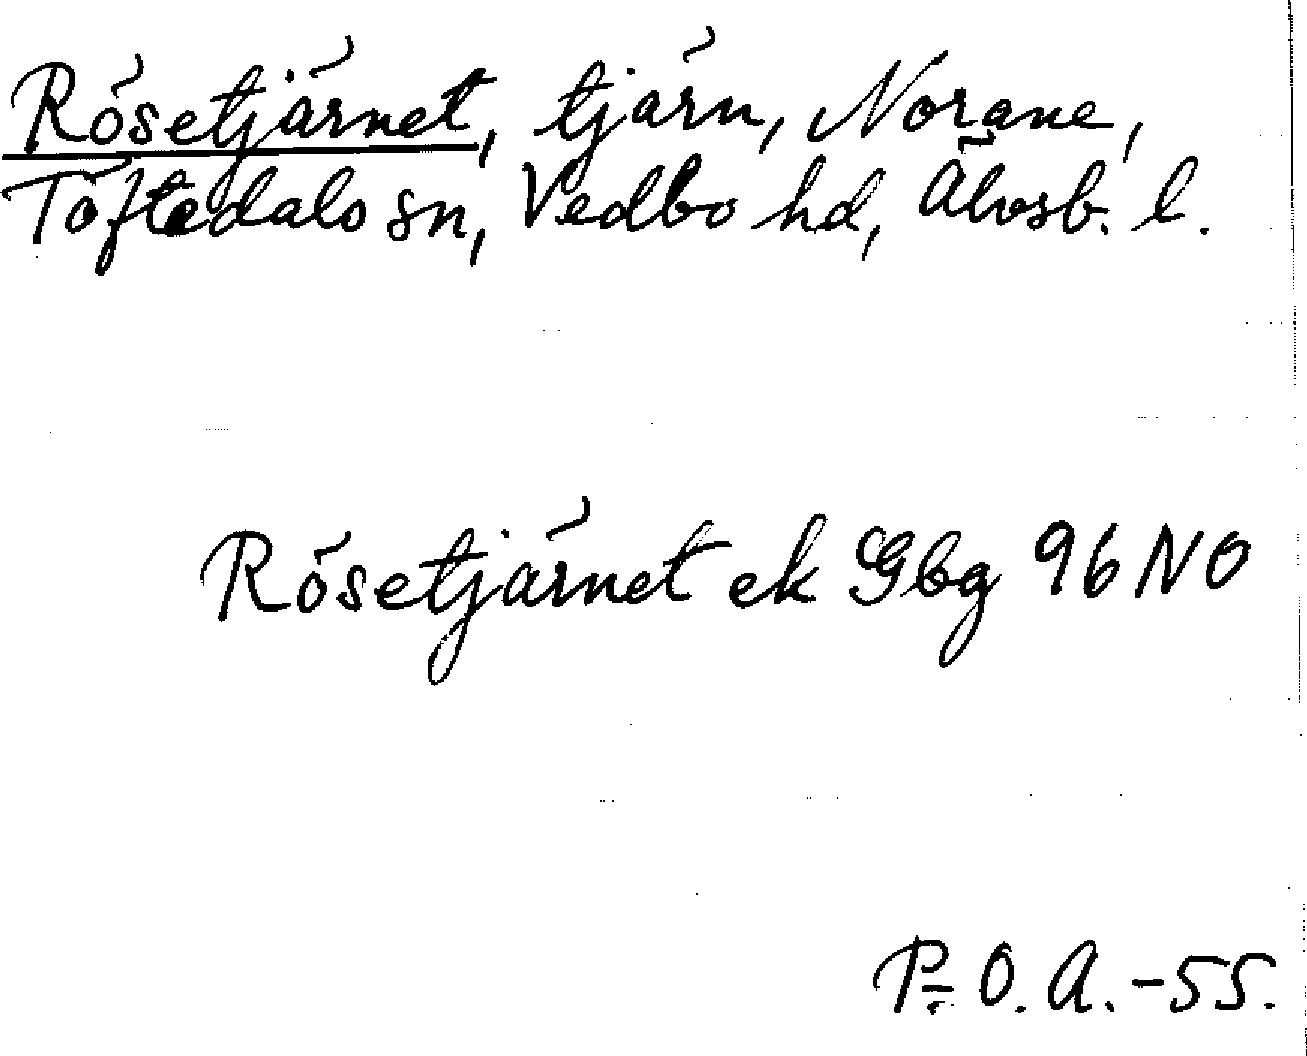 Rösetjärnet, tjärn, Norane,
Töftedals sn, Vedbo hd, Älvsb. l.
Rösetjärnet ek Gbg 96 NO
P. O. A. -55.